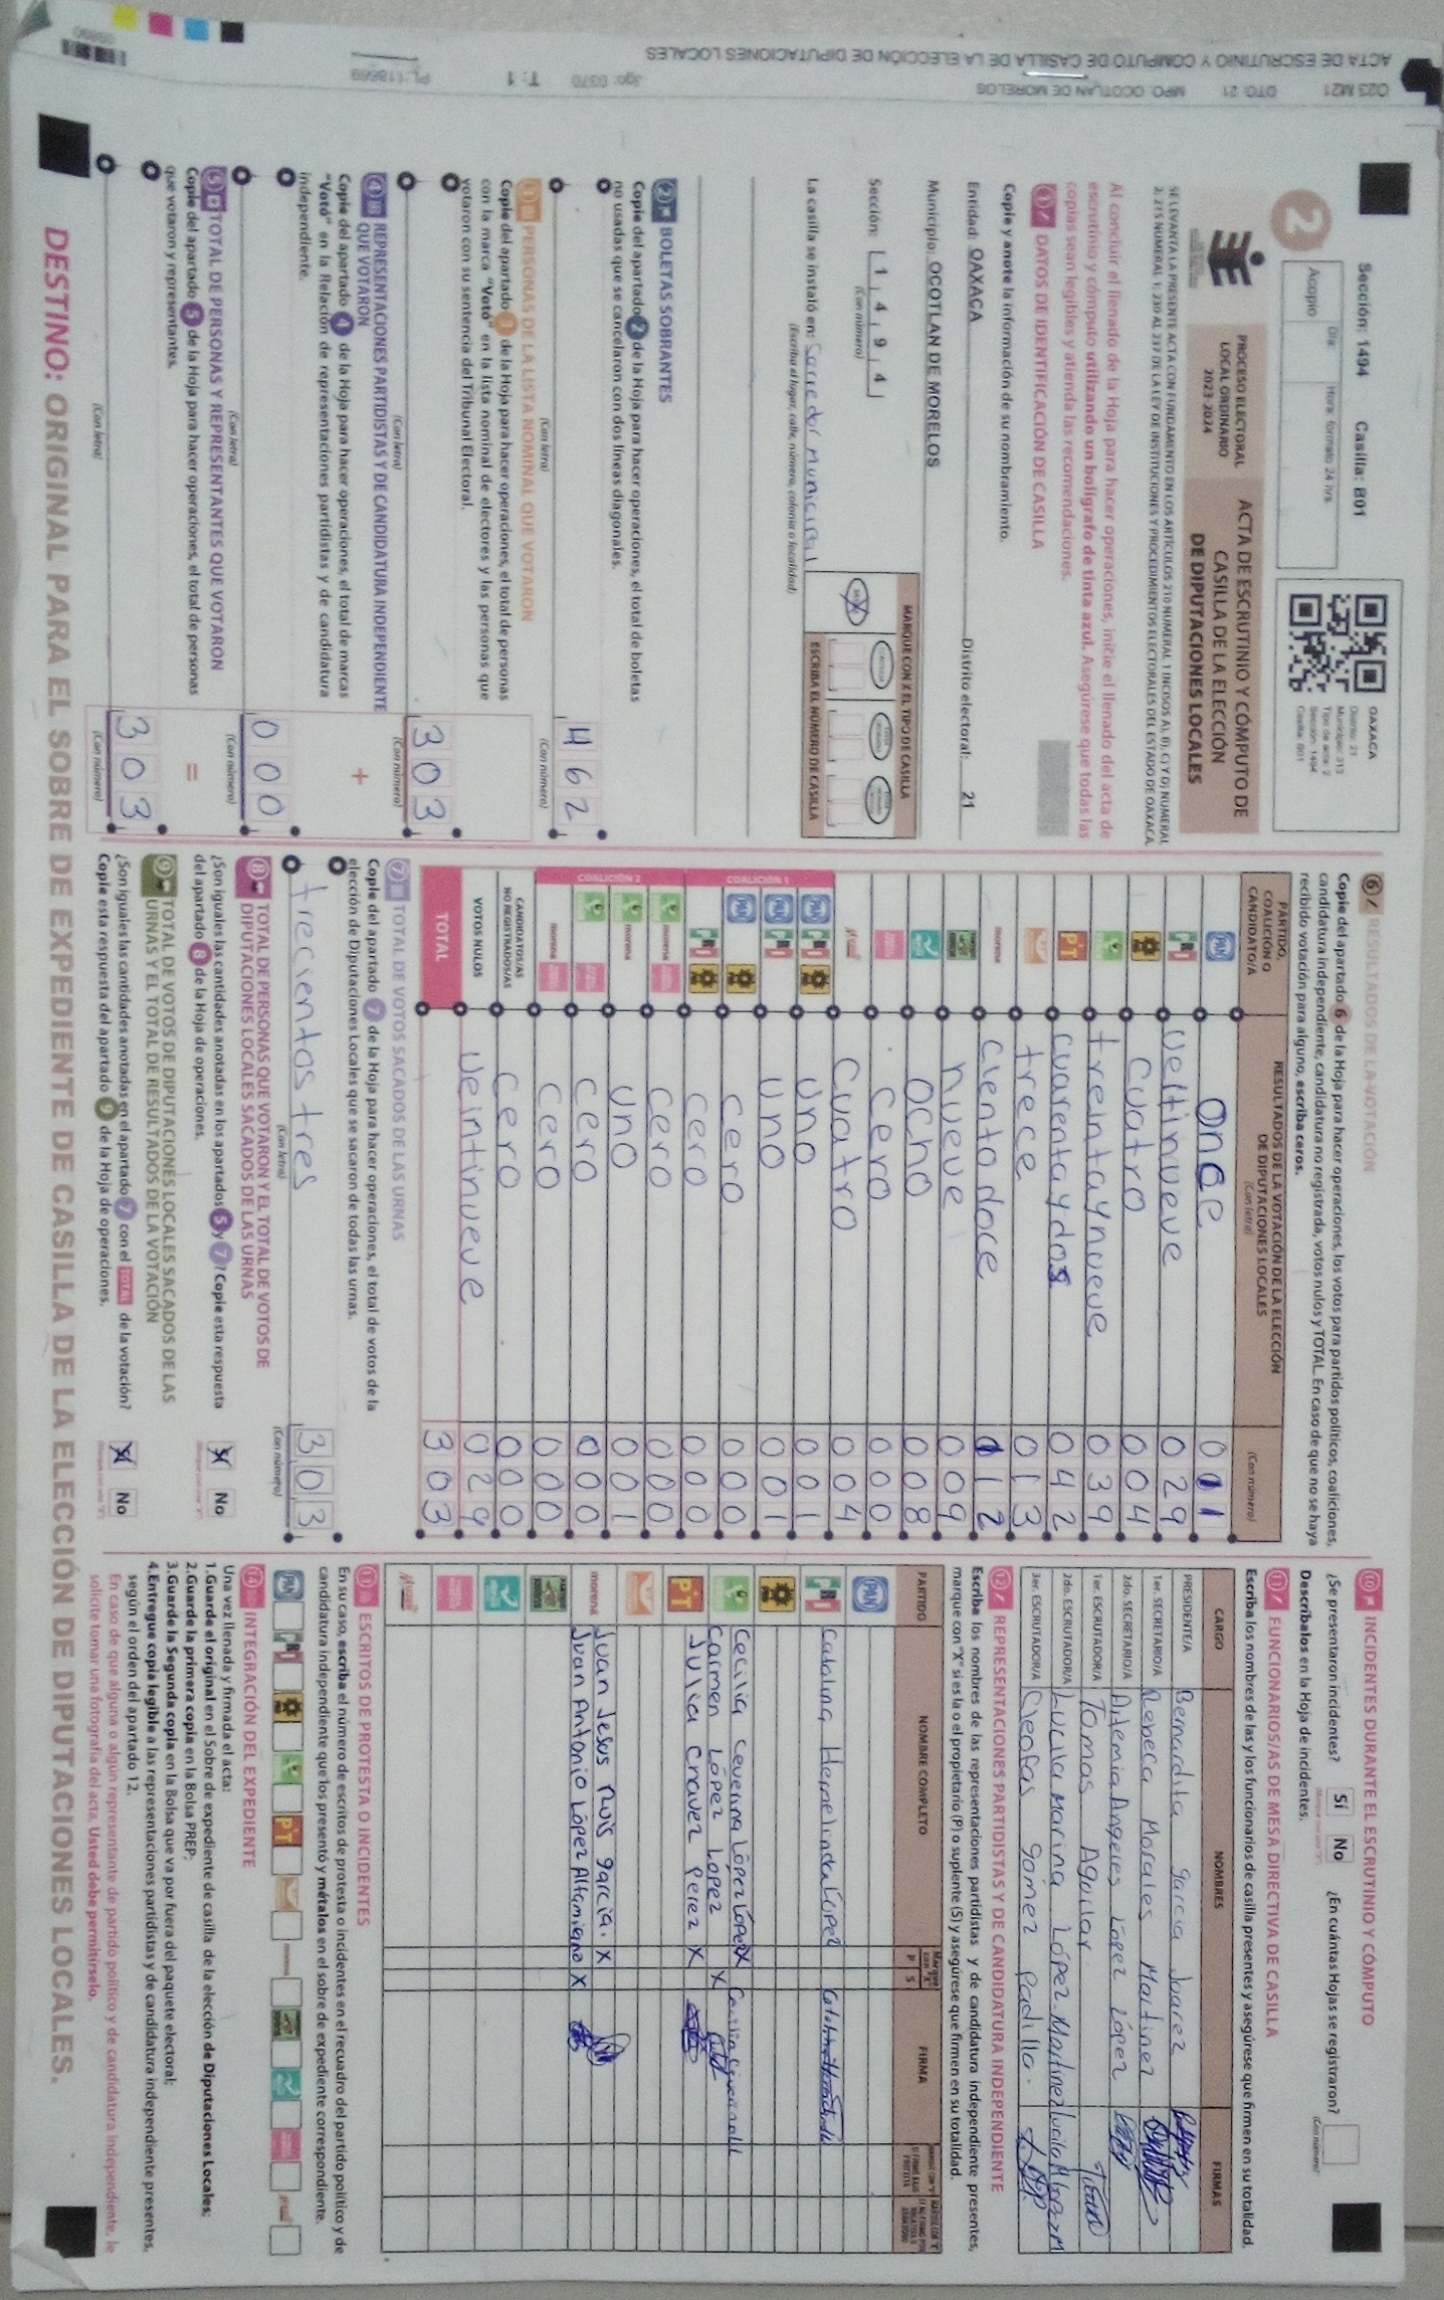 O23 M21 DTO: 21 MPO: OCOTLAN DE MORELOS T: 1
ACTA DE ESCRUTINIO Y CÓMPUTO DE CASILLA DE LA ELECCIÓN DE DIPUTACIONES LOCALES
Sección: 1494 Casilla: B01
2
Acopio
Día:
Hora: formato 24 hrs
OAXACA
Distrito: 21
Municipio: 213
Tipo de acta: 2
Sección: 1494
Casilla: B01
PROCESO ELECTORAL
LOCAL ORDINARIO
2023-2024
ACTA DE ESCRUTINIO Y CÓMPUTO DE
CASILLA DE LA ELECCIÓN
DE DIPUTACIONES LOCALES
SE LEVANTA LA PRESENTE ACTA CON FUNDAMENTO EN LOS ARTÍCULOS 210 NUMERAL 1 INCISOS A), B), C) Y D) NUMERAL
2; 215 NUMERAL 1; 230 AL 237 DE LA LEY DE INSTITUCIONES Y PROCEDIMIENTOS ELECTORALES DEL ESTADO DE OAXACA.
Al concluir el llenado de la Hoja para hacer operaciones, inicie el llenado del acta de
escrutinio y cómputo utilizando un bolígrafo de tinta azul. Asegúrese que todas las
copias sean legibles y atienda las recomendaciones.
1 DATOS DE IDENTIFICACIÓN DE CASILLA
Copie y anote la información de su nombramiento.
Entidad: OAXACA Distrito electoral: 21
Municipio: OCOTLAN DE MORELOS
Sección: 1 4 9 4
(Con número)
MARQUE CON X EL TIPO DE CASILLA
ESCRIBA EL NÚMERO DE CASILLA
La casilla se instaló en: Corredor Municipal
(Escriba el lugar, calle, número, colonia o localidad)
2 BOLETAS SOBRANTES
Copie del apartado 2 de la Hoja para hacer operaciones, el total de boletas
no usadas que se cancelaron con dos líneas diagonales.
462
(Con letra) (Con número)
3 PERSONAS DE LA LISTA NOMINAL QUE VOTARON
Copie del apartado 3 de la Hoja para hacer operaciones, el total de personas
con la marca "Votó" en la lista nominal de electores y las personas que
votaron con su sentencia del Tribunal Electoral.
303
(Con letra) (Con número)
4 REPRESENTACIONES PARTIDISTAS Y DE CANDIDATURA INDEPENDIENTE
QUE VOTARON
+
Copie del apartado 4 de la Hoja para hacer operaciones, el total de marcas
"Votó" en la Relación de representaciones partidistas y de candidatura
independiente.
000
(Con letra) (Con número)
5 TOTAL DE PERSONAS Y REPRESENTANTES QUE VOTARON
=
Copie del apartado 5 de la Hoja para hacer operaciones, el total de personas
que votaron y representantes.
303
(Con letra) (Con número)
6 RESULTADOS DE LA VOTACIÓN
Copie del apartado 6 de la Hoja para hacer operaciones, los votos para partidos políticos, coaliciones,
candidatura independiente, candidatura no registrada, votos nulos y TOTAL. En caso de que no se haya
recibido votación para alguno, escriba ceros.
PARTIDO,
COALICIÓN O
CANDIDATO/A
RESULTADOS DE LA VOTACIÓN DE LA ELECCIÓN
DE DIPUTACIONES LOCALES
(Con letra)
(Con número)
PAN Once 011
PRI Veitinueve 029
Cuatro 004
treintaynueve 039
PT cuarentaydos 042
trece 013
morena Ciento doce 112
nueve 009
ocho 008
Cero 000
Cuatro 004
COALICIÓN 1
PAN PRI Uno 001
PAN PRI Uno 001
PAN cero 000
PRI cero 000
COALICIÓN 2
morena cero 000
morena Uno 001
cero 000
morena cero 000
CANDIDATOS/AS
NO REGISTRADOS/AS cero 000
VOTOS NULOS Veintinueve 029
TOTAL 303
7 TOTAL DE VOTOS SACADOS DE LAS URNAS
Copie del apartado 7 de la Hoja para hacer operaciones, el total de votos de la
elección de Diputaciones Locales que se sacaron de todas las urnas.
trecientos tres 303
(Con letra) (Con número)
8 TOTAL DE PERSONAS QUE VOTARON Y EL TOTAL DE VOTOS DE
DIPUTACIONES LOCALES SACADOS DE LAS URNAS
¿Son iguales las cantidades anotadas en los apartados 5 y 7? Copie esta respuesta
del apartado 8 de la Hoja de operaciones.
X No
9 TOTAL DE VOTOS DE DIPUTACIONES LOCALES SACADOS DE LAS
URNAS Y EL TOTAL DE RESULTADOS DE LA VOTACIÓN
¿Son iguales las cantidades anotadas en el apartado 7 con el TOTAL de la votación?
Copie esta respuesta del apartado 9 de la Hoja de operaciones.
X No
10 INCIDENTES DURANTE EL ESCRUTINIO Y CÓMPUTO
¿Se presentaron incidentes? Sí No ¿En cuántas Hojas se registraron?
(Con número)
Descríbalos en la Hoja de incidentes.
11 FUNCIONARIOS/AS DE MESA DIRECTIVA DE CASILLA
Escriba los nombres de las y los funcionarios de casilla presentes y asegúrese que firmen en su totalidad.
CARGO NOMBRES FIRMAS
PRESIDENTE/A Bernardita garcia Juarez
1er. SECRETARIO/A Rebeca Morales Martinez
2do. SECRETARIO/A Artemia Angeles López López
1er. ESCRUTADOR/A Tomas Aguilar
2do. ESCRUTADOR/A Lucila Marina López Martinez
3er. ESCRUTADOR/A Cleofas gómez Padilla.
12 REPRESENTACIONES PARTIDISTAS Y DE CANDIDATURA INDEPENDIENTE
Escriba los nombres de las representaciones partidistas y de candidatura independiente presentes,
marque con "X" si es la o el propietario (P) o suplente (S) y asegúrese que firmen en su totalidad.
PARTIDO NOMBRE COMPLETO P S FIRMA
PAN
PRI Catalina Hermelinda López
Cecilia Ceverina López López X
Carmen López López X
PT Julia Cravez Perez X
morena Juan Jesus Ruis garcia. X
Juan Antonio López Altamirano X
13 ESCRITOS DE PROTESTA O INCIDENTES
En su caso, escriba el número de escritos de protesta o incidentes en el recuadro del partido político y de
candidatura independiente que los presentó y métalos en el sobre de expediente correspondiente.
PAN PRI PT
14 INTEGRACIÓN DEL EXPEDIENTE
Una vez llenada y firmada el acta:
1.Guarde el original en el Sobre de expediente de casilla de la elección de Diputaciones Locales;
2.Guarde la primera copia en la Bolsa PREP;
3.Guarde la Segunda copia en la Bolsa que va por fuera del paquete electoral;
4.Entregue copia legible a las representaciones partidistas y de candidatura independiente presentes,
según el orden del apartado 12.
En caso de que alguna o algún representante de partido político y de candidatura independiente, le
solicite tomar una fotografía del acta, Usted debe permitírselo.
DESTINO: ORIGINAL PARA EL SOBRE DE EXPEDIENTE DE CASILLA DE LA ELECCIÓN DE DIPUTACIONES LOCALES.